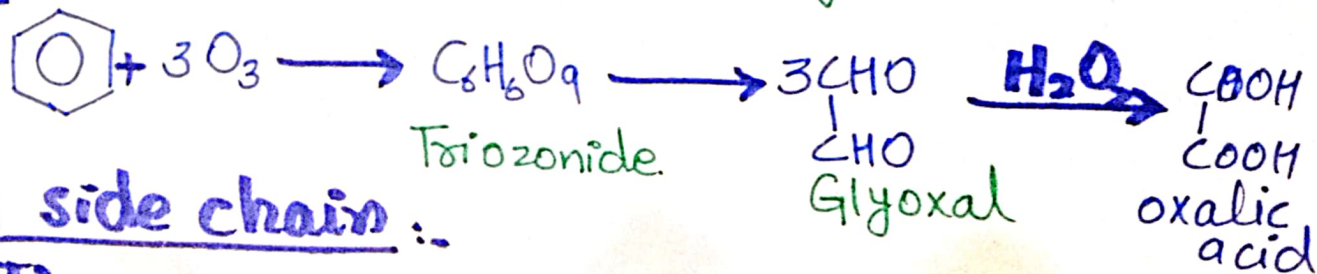 + 3 O₃ ⟶ C₆H₆O₉ ⟶ 3CHO H₂O ⟶ COOH
CHO COOH
Triozonide. Glyoxal oxalic acid
side chain :-